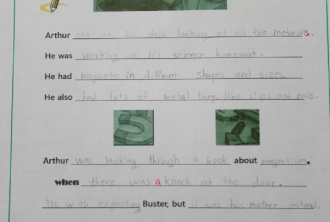 Arthur sat at his desk looking at all the materials.
He was working on his science homework.
He had magnets in different shapes and sizes.
He also had lots of metal things like clips and nails.
Arthur was looking through a book about magnetism.
when there was a knock at the door.
He was expecting Buster, but it was his mother instead.